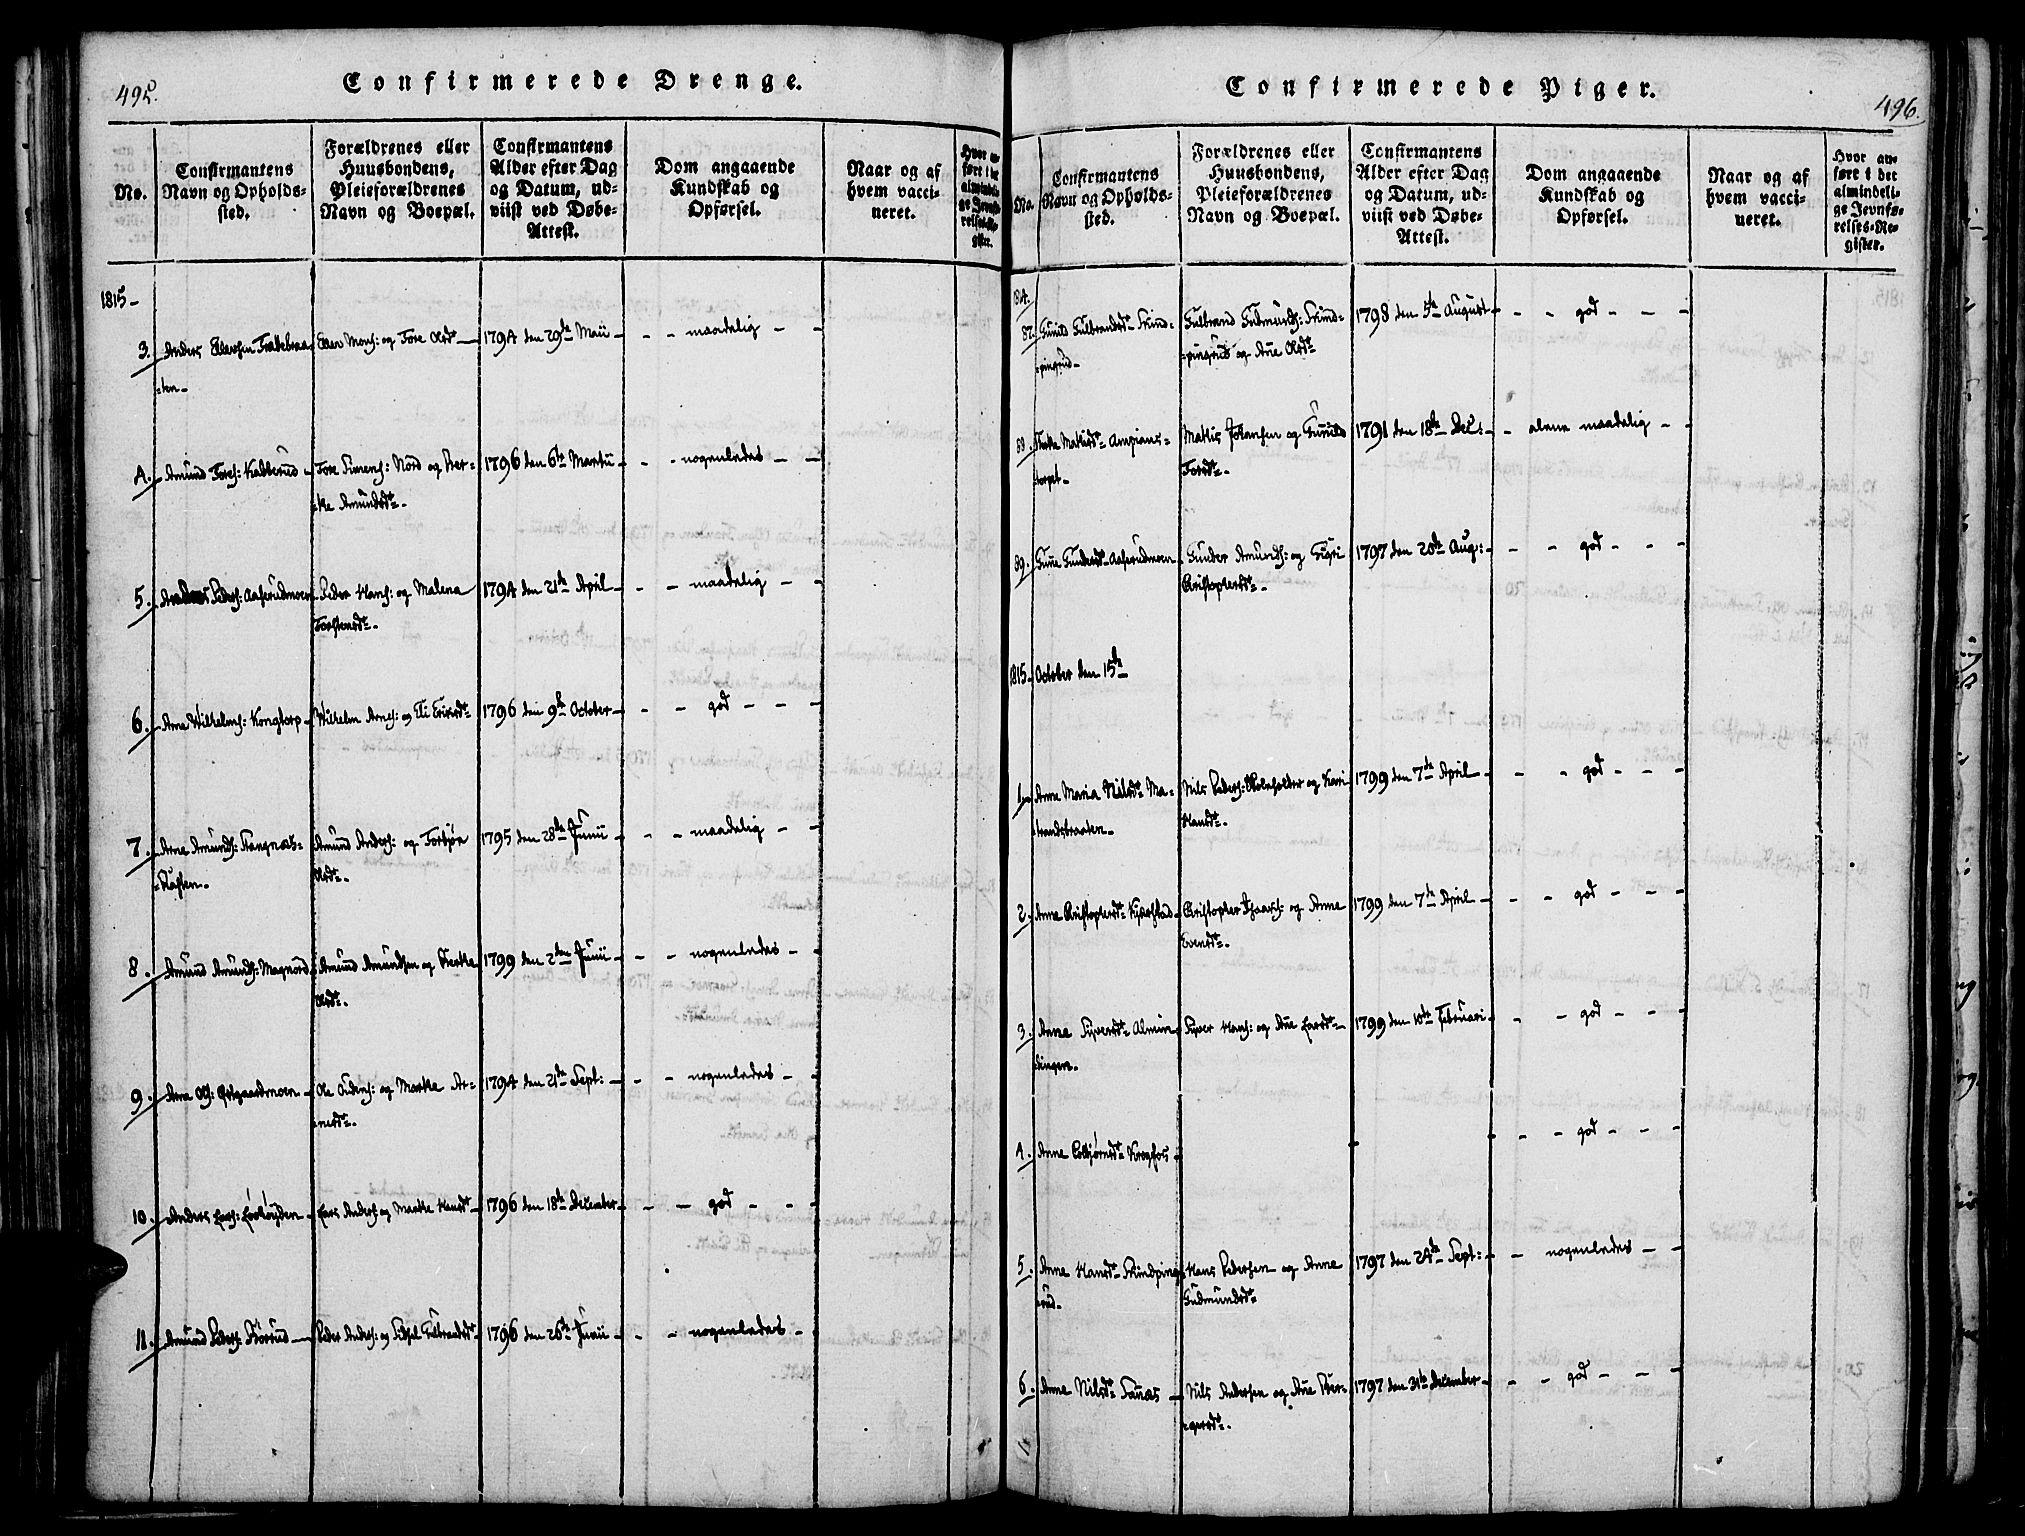 495.
Confirmerede Drenge.
No.
Confirmantens
Navn og Opholds-
sted.
Forældrenes eller
Huusbondens,
Pleieforældrenes
Navn og Boepæl.
Confirmantens
Alder efter Dag
og Datum, ud-
viist ved Døbe-
Attest.
Dom angaaende
Kundskab og
Opførsel.
Naar og af
hvem vacci-
neret.
1815-
3. Anders Ellevsen
Mons: og Tore Olsd 1794 den 29de Maii - - maadelig - -
4. Amund Tores: Kalterud
Tore Simens: Nord og Mar-
the Amundsd. 1796 den 6te Martii - - nogenledes - -
5. Peders: Aaserudmoen
Peder Hans: og Malena
Torstensd. 1794 den 21de April - - maadelig - -
6. Arne Wilhelms: Kongtorp
Wilhelm Arnes: og Eli Ericsd. 1796 den 9de October - - god - - -
7. Arne Amunds:
Amund Anders: og Torbjør
Olsd. 1795 den 28de Junii - - maadelig - -
8. Amund Amunds: Magnord
Amund Amundsen og Marthe
Olsd. 1799 den 2den Junii - - nogenledes - -
9. Arne Ols: Østgaardmoen
Ole og Marthe Ar-
nesd. 1794 den 21de Sept: - - nogenledes - -
10. Anders Lars:
Lars Anders: og Marthe Hansd 1796 den 18de December - - god - - -
11. Amund Peders:
Peder Anders: og Sidsel Gulbrandsd. 1796 den 26de Junii - - nogenledes -
496.
Confirmerede Piger.
No.
Confirmantens
Navn og Opholds-
sted.
Forældrenes eller
Huusbondens,
Pleieforældrenes
Navn og Boepæl.
Confirmantens
Alder efter Dag
og Datum, ud-
viist ved Døbe-
Attest.
Dom angaaende
Kundskab og
Opførsel.
Naar og af
hvem vacci-
neret.
Hvor an-
ført i det
almindeli-
ge Jevnfø-
relses-Re-
gister.
1814.
87. Gunild Gulbrandsd. Skind-
pingrud
Gulbrand Gudmunds: Skind-
pingrud og Ane Olsd. 1798 den 5te August - - god - - -
88. Marthe Mathisd. Ampians-
torpet
Mathis Johansen og Gunild
Toresd. 1791 den 18de Dec: - alene maadelig - -
89. Gundersd. Aaserudmoen
Gunder Amunds: og Sigri
Christophersd. 1797 den 20de Aug: - - god - - -
1815. October den 15de
1. Anne Maria Nilsd. Ma-
trandsbraaten
Nils Peders: Skoleholder og Kari
Hansd. 1799 den 7de April - - god - - -
2. Anne Christophersd. Kiverstad
Christopher Ifvars: og Anne
Evensd. 1799 den 7de April - - god - - -
3. Anne Syversd. Almin-
dingen
Syver Hans: og Ane Larsd. 1799 den 10de Februari - - god - - -
4. Anne Colbjørnsd. Krogfos - - god - - -
5. Anne Hansd. Skindping-
rud.
Hans Pedersen og Anne
Gudmundsd. 1797 den 24de Sept: - - nogenledes - -
6. Anne Nilsd.
Nils Andersen og Ane
1797 den 31te December - - god - - -